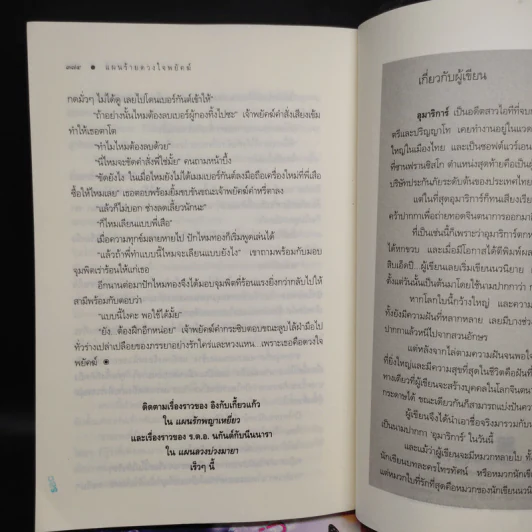 ๓๘๙ • แผนร้ายดวงใจพยัคฆ์
กดมั่วๆ ไม่ได้ดู เลยไปโดนเบอร์กันต์เข้าให้"
"ถ้าอย่างนั้นไหมต้องลบเบอร์ผู้กองทิ้งไปซะ" เจ้าพยัคฆ์สั่งเสียงเข้ม
ทำให้เธอตาโต
"ทำไมไหมต้องลบด้วย"
"นี่ไหมจะขัดคำสั่งพี่ใช่มั้ย" คนถามหน้าบึ้ง
"ขัดยังไง ในเมื่อไหมยังไม่ได้เมมเบอร์กันต์ลงมือถือเครื่องใหม่ที่พี่เสือ
ซื้อให้ไหมเลย" เธอตอบพร้อมยิ้มขบขันขณะเจ้าพยัคฆ์คำหรี่ตาลง
"แล้วก็ไม่บอก ช่างลดเลี้ยวนักนะ"
"ก็ไหมเลียนแบบพี่เสือ"
เมื่อความทุกข์มลายหายไป ปักไหมทองก็เริ่มพูดเล่นได้
"แล้วถ้าพี่ทำแบบนี้ไหมจะเลียนแบบยังไง" เขาถามพร้อมกับมอบ
จุมพิตเร่าร้อนให้แก่เธอ
อึกนานต่อมาปักไหมทองจึงได้มอบจุมพิตที่ร้อนแรงยิ่งกว่ากลับไปให้
สามีพร้อมกับตอบว่า
"แบบนี้ไงคะ พอใช้ได้มั้ย"
"ยัง...ต้องฝึกอีกหน่อย" เจ้าพยัคฆ์คำกระซิบตอบขณะลูบไล้ฝ่ามือไป
ทั่วร่างเปล่าเปลือยของภรรยาอย่างรักใคร่และหวงแหน...เพราะเธอคือดวงใจ
พยัคฆ์
ติดตามเรื่องราวของ อิงกับเกี้ยวแก้ว
ใน แผนรักพญาเหยี่ยว
และเรื่องราวของ ร.ต.อ. นกันต์กับนีนนารา
ใน แผนลวงบ่วงมายา
เร็วๆ นี้
เกี่ยวกับผู้เขียน
อุมาริการ์ เป็นอดีตสาวไอทีที่จบก
ตรีและปริญญาโท เคยทำงานอยู่ในแวด
ใหญ่ในเมืองไทย และเป็นซอฟต์แวร์เอน
ที่ซานฟรานซิสโก ตำแหน่งสุดท้ายคือเป็น
บริษัทประกันภัยระดับต้นของประเทศไทย
แต่ในที่สุดอุมาริการ์ก็ทนเสียงเรีย
คว้าปากกาเพื่อถ่ายทอดจินตนาการออกมา
ที่เป็นเช่นนี้ก็เพราะว่าอุมาริการ์ตก
ได้หกขวบ และเมื่อมีโอกาสได้ตีพิมพ์ผล
สิบเอ็ดปี...ผู้เขียนเลยเริ่มเขียนนวนิยาย
ตั้งแต่วันนั้นเป็นต้นมาโดยใช้นามปากกาว่า
หากโลกใบนี้กว้างใหญ่ และความ
ทั้งยังมีความฝันที่หลากหลาย เลยมีบางช่วง
ปากกาแล้วหนีไปจากสวนอักษร
แต่หลังจากไล่ตามความฝันจนพอใจ
ที่ยิ่งใหญ่และมีความสุขที่สุดในชีวิตคือฝันที่
ทางเดียวที่ผู้เขียนจะสร้างบุคคลในโลกจินต
กระดาษได้ ขณะเดียวกันก็สามารถแบ่งปันความ
ผู้เขียนจึงได้นำเอาชื่อจริงมารวมกับน
เป็นนามปากกา 'อุมาริการ์' ในวันนี้
และแม้ว่าผู้เขียนจะมีหมวกหลายใบ ทั้
นักเขียนบทละครโทรทัศน์ หรือหมวกนักเขีย
แต่หมวกใบที่รักที่สุดคือหมวกของนักเขียนนวนิ